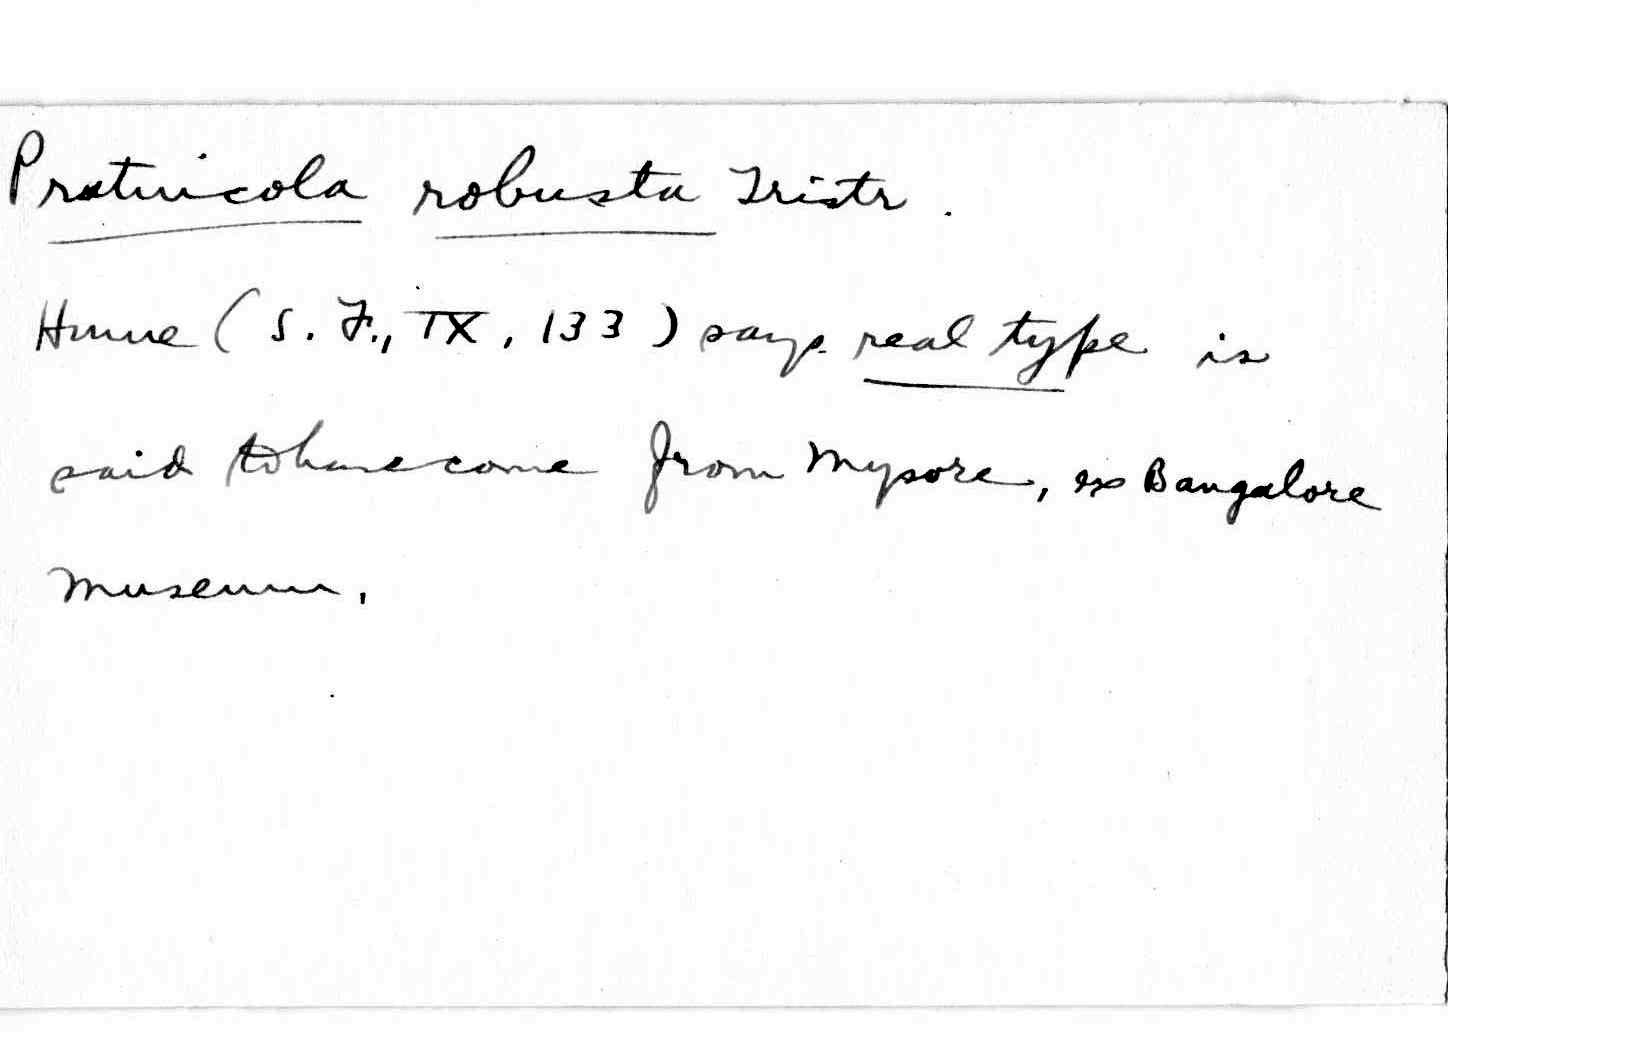 Pratincola robusta Tristr.
Hume (S. F., IX, 133) says real type is
said to have come from Mysore, ex Bangalore
Museum.